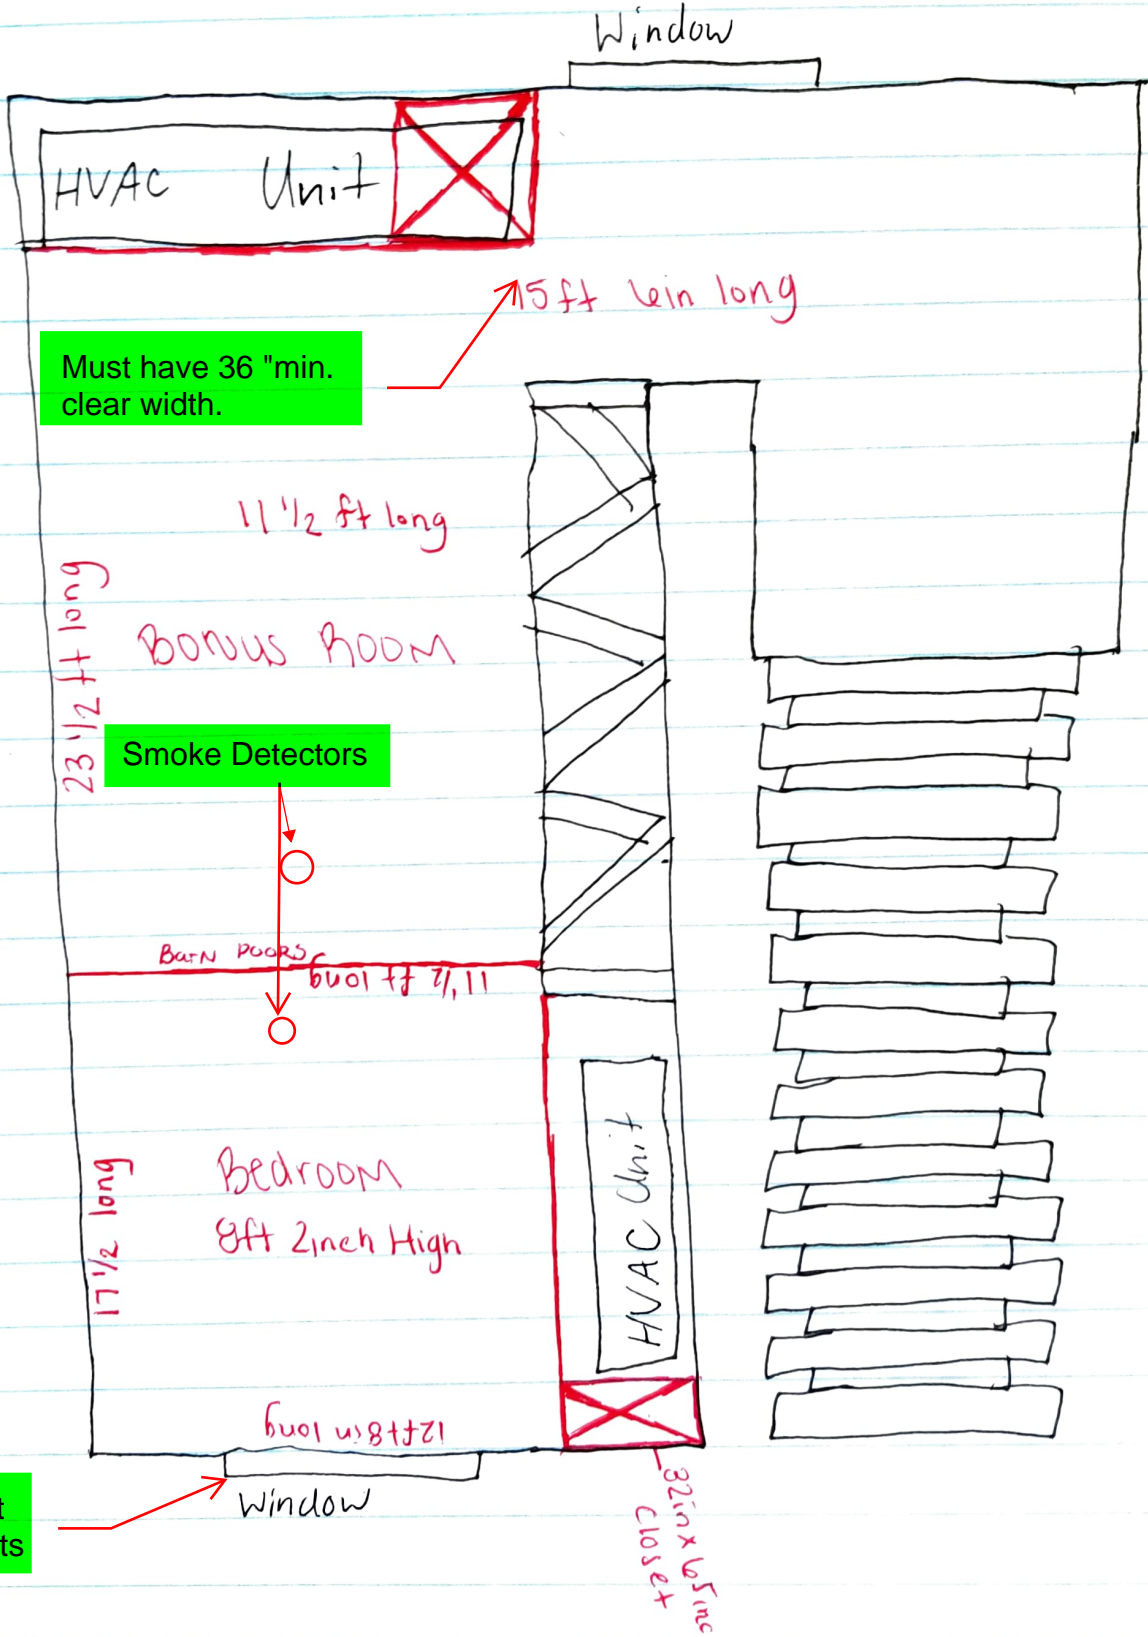 Window
HVAC Unit
15ft 6in long
Must have 36 "min.
clear width.
11 1/2 ft long
23 1/2 ft long
Bonus Room
Smoke Detectors
Barn Doors
11 1/2 ft long
Bedroom
8ft 2inch High
17 1/2 long
HVAC Unit
12ft8in long
Window
32in x 65inc
Closet